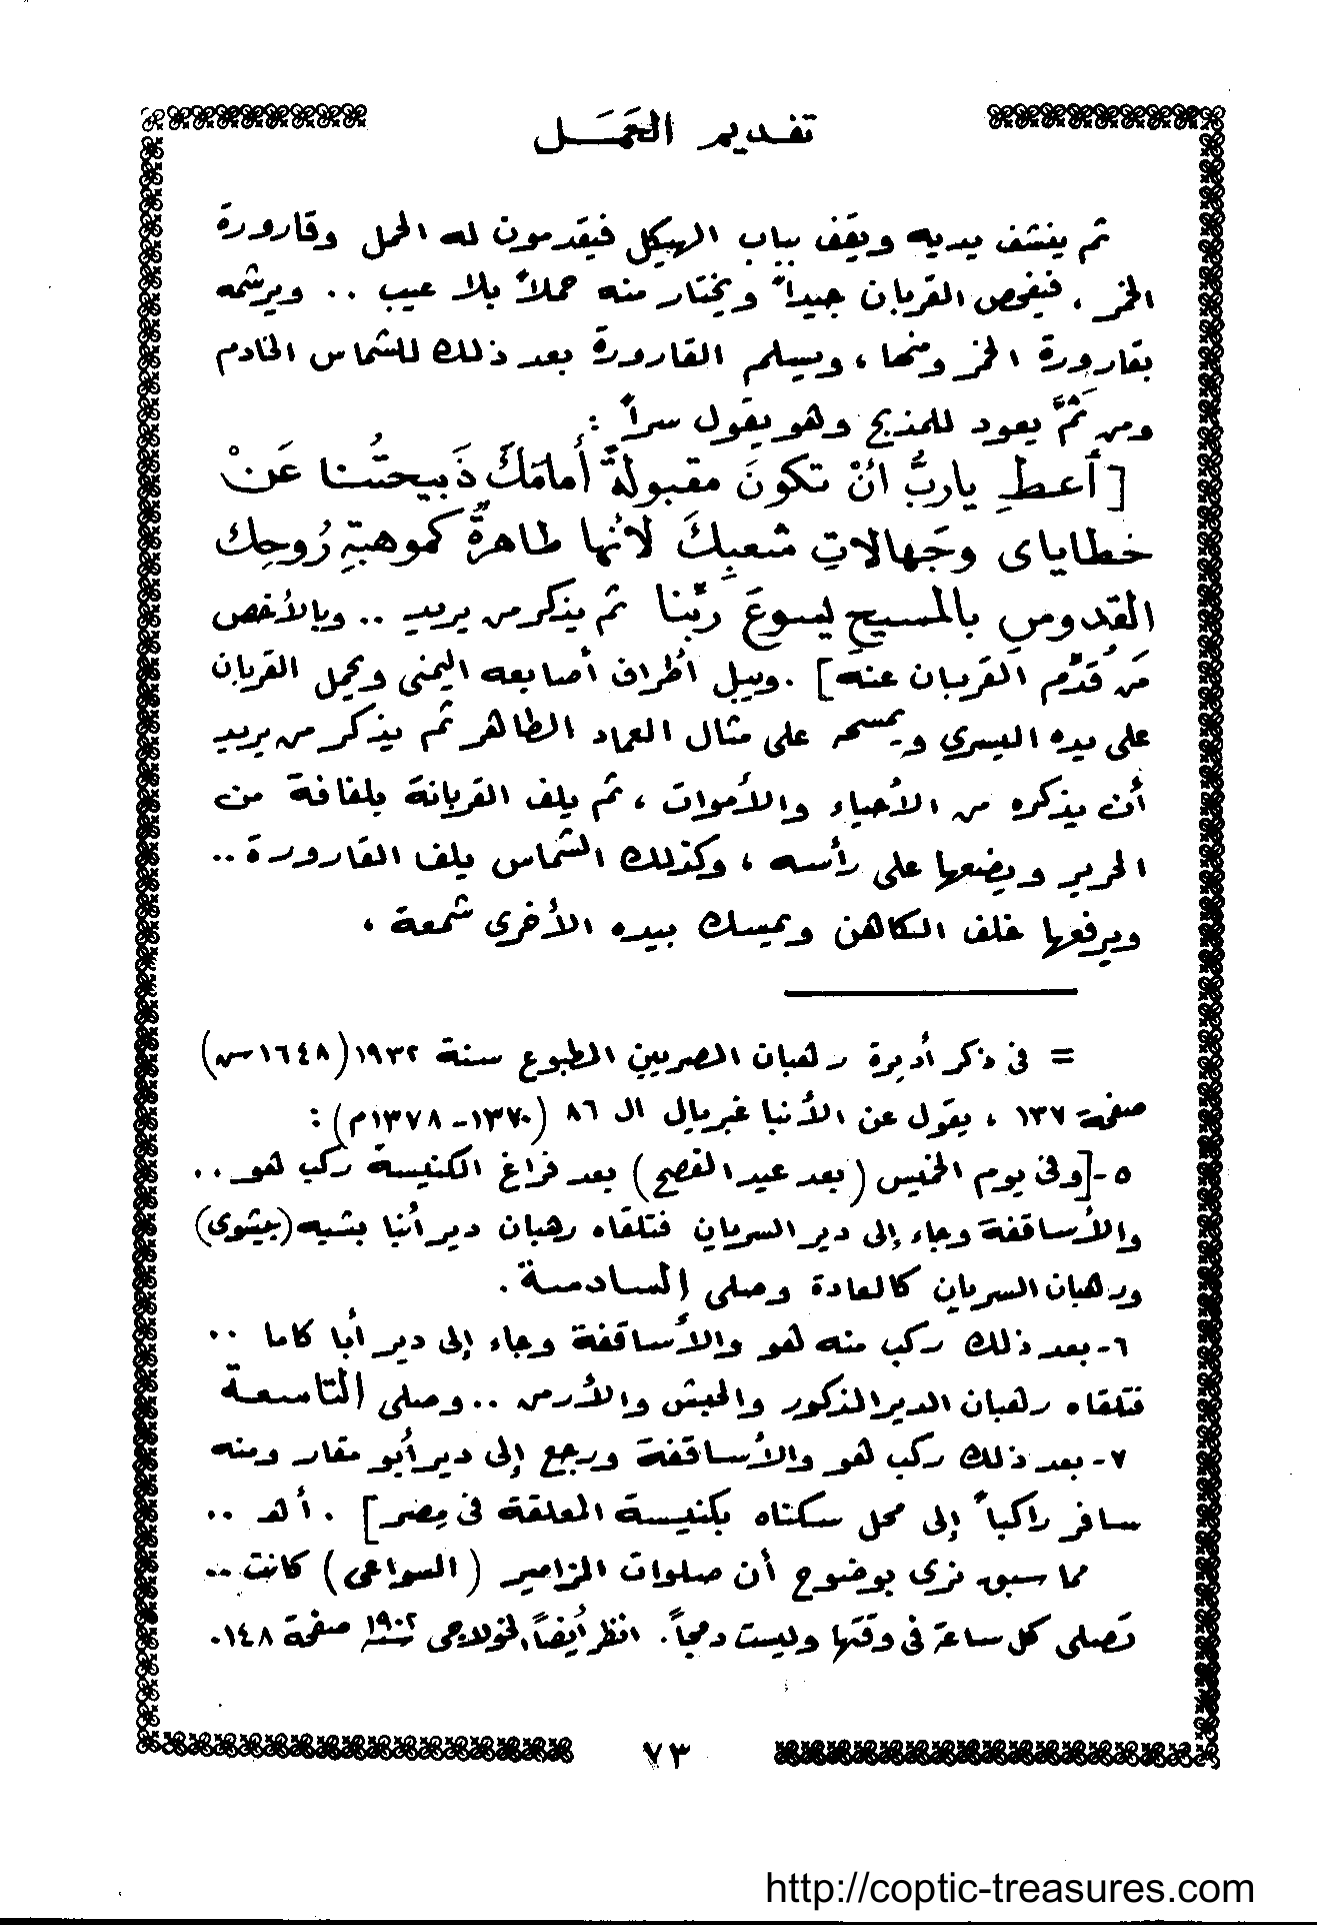 تقديم الحَمَــل
ثم ينشف يديه ويقف بباب الهيكل فيقدمون له الحمل وقارورة
الخمر ، فيفحص القربان جيداً ويختار منه حملاً بلا عيب .. ويرشمه
بقارورة الخمر ومنها ، ويسلم القارورة بعد ذلك للشماس الخادم
ومن ثَمَّ يعود للمذبح وهو يقول سراً :
[ أعـطِ ياربُّ انْ تكونَ مقبولةً أُمامَكَ ذَبيحتُـنا عَنْ
خطاياى وجَهالاتِ شعبِكَ لأنها طاهرةٌ كموهبةِ رُوحِك
القُدوسِ بالمسيحِ يسوعَ ربِّنا ثم يذكر من يريد .. وبالأخص
مَن قُدِّم القربان عنه] . ويبل أطراف أصابعه اليمنى ويحمل القربان
على يده اليسرى ويمسحه على مثال العماد الطاهر ثم يذكر من يريد
أن يذكره من الأحياء والأموات ، ثم يلف القربانة بلفافة من
الحرير ويضعها على رأسه ، وكذلك الشماس يلف القارورة ..
ويرفعها خلف الكاهن ويمسك بيده الأخرى شمعة ،
= فى ذكر أديرة رهبان المصريين المطبوع سنة ١٩٣٢ (١٦٤٨ س)
صفحة ١٣٧ ، يقول عن الأنبا غبريال ال ٨٦ (١٣٧٠-١٣٧٨م) :
٥- [وفى يوم الخميس (بعد عيد الفصح) بعد فراغ الكنيسة ركب هو ..
والأساقفة وجاء إلى دير السريان فتلقاه رهبان دير أنبا بشيه (بيشوى)
ورهبان السريان كالعادة وصلى السادسة .
٦- بعد ذلك ركب منه هو والأساقفة وجاء إلى دير أبا كاما ..
فتلقاه رهبان الدير المذكور والحبش والأرمن .. وصلى التاسعة
٧- بعد ذلك ركب هو والأساقفة ورجع إلى دير أبو مقار ومنه
سافر راكباً إلى محل سكناه بكنيسة المعلقة فى مصر] . أ هـ ..
مما سبق نرى بوضوح أن صلوات المزامير (السواعى) كانت ..
تصلى كل ساعة فى وقتها وليست دمجاً. انظر أيضاً الخولاجى سنة ١٩٠٢ صفحة ١٤٨.
٧٣
http://coptic-treasures.com